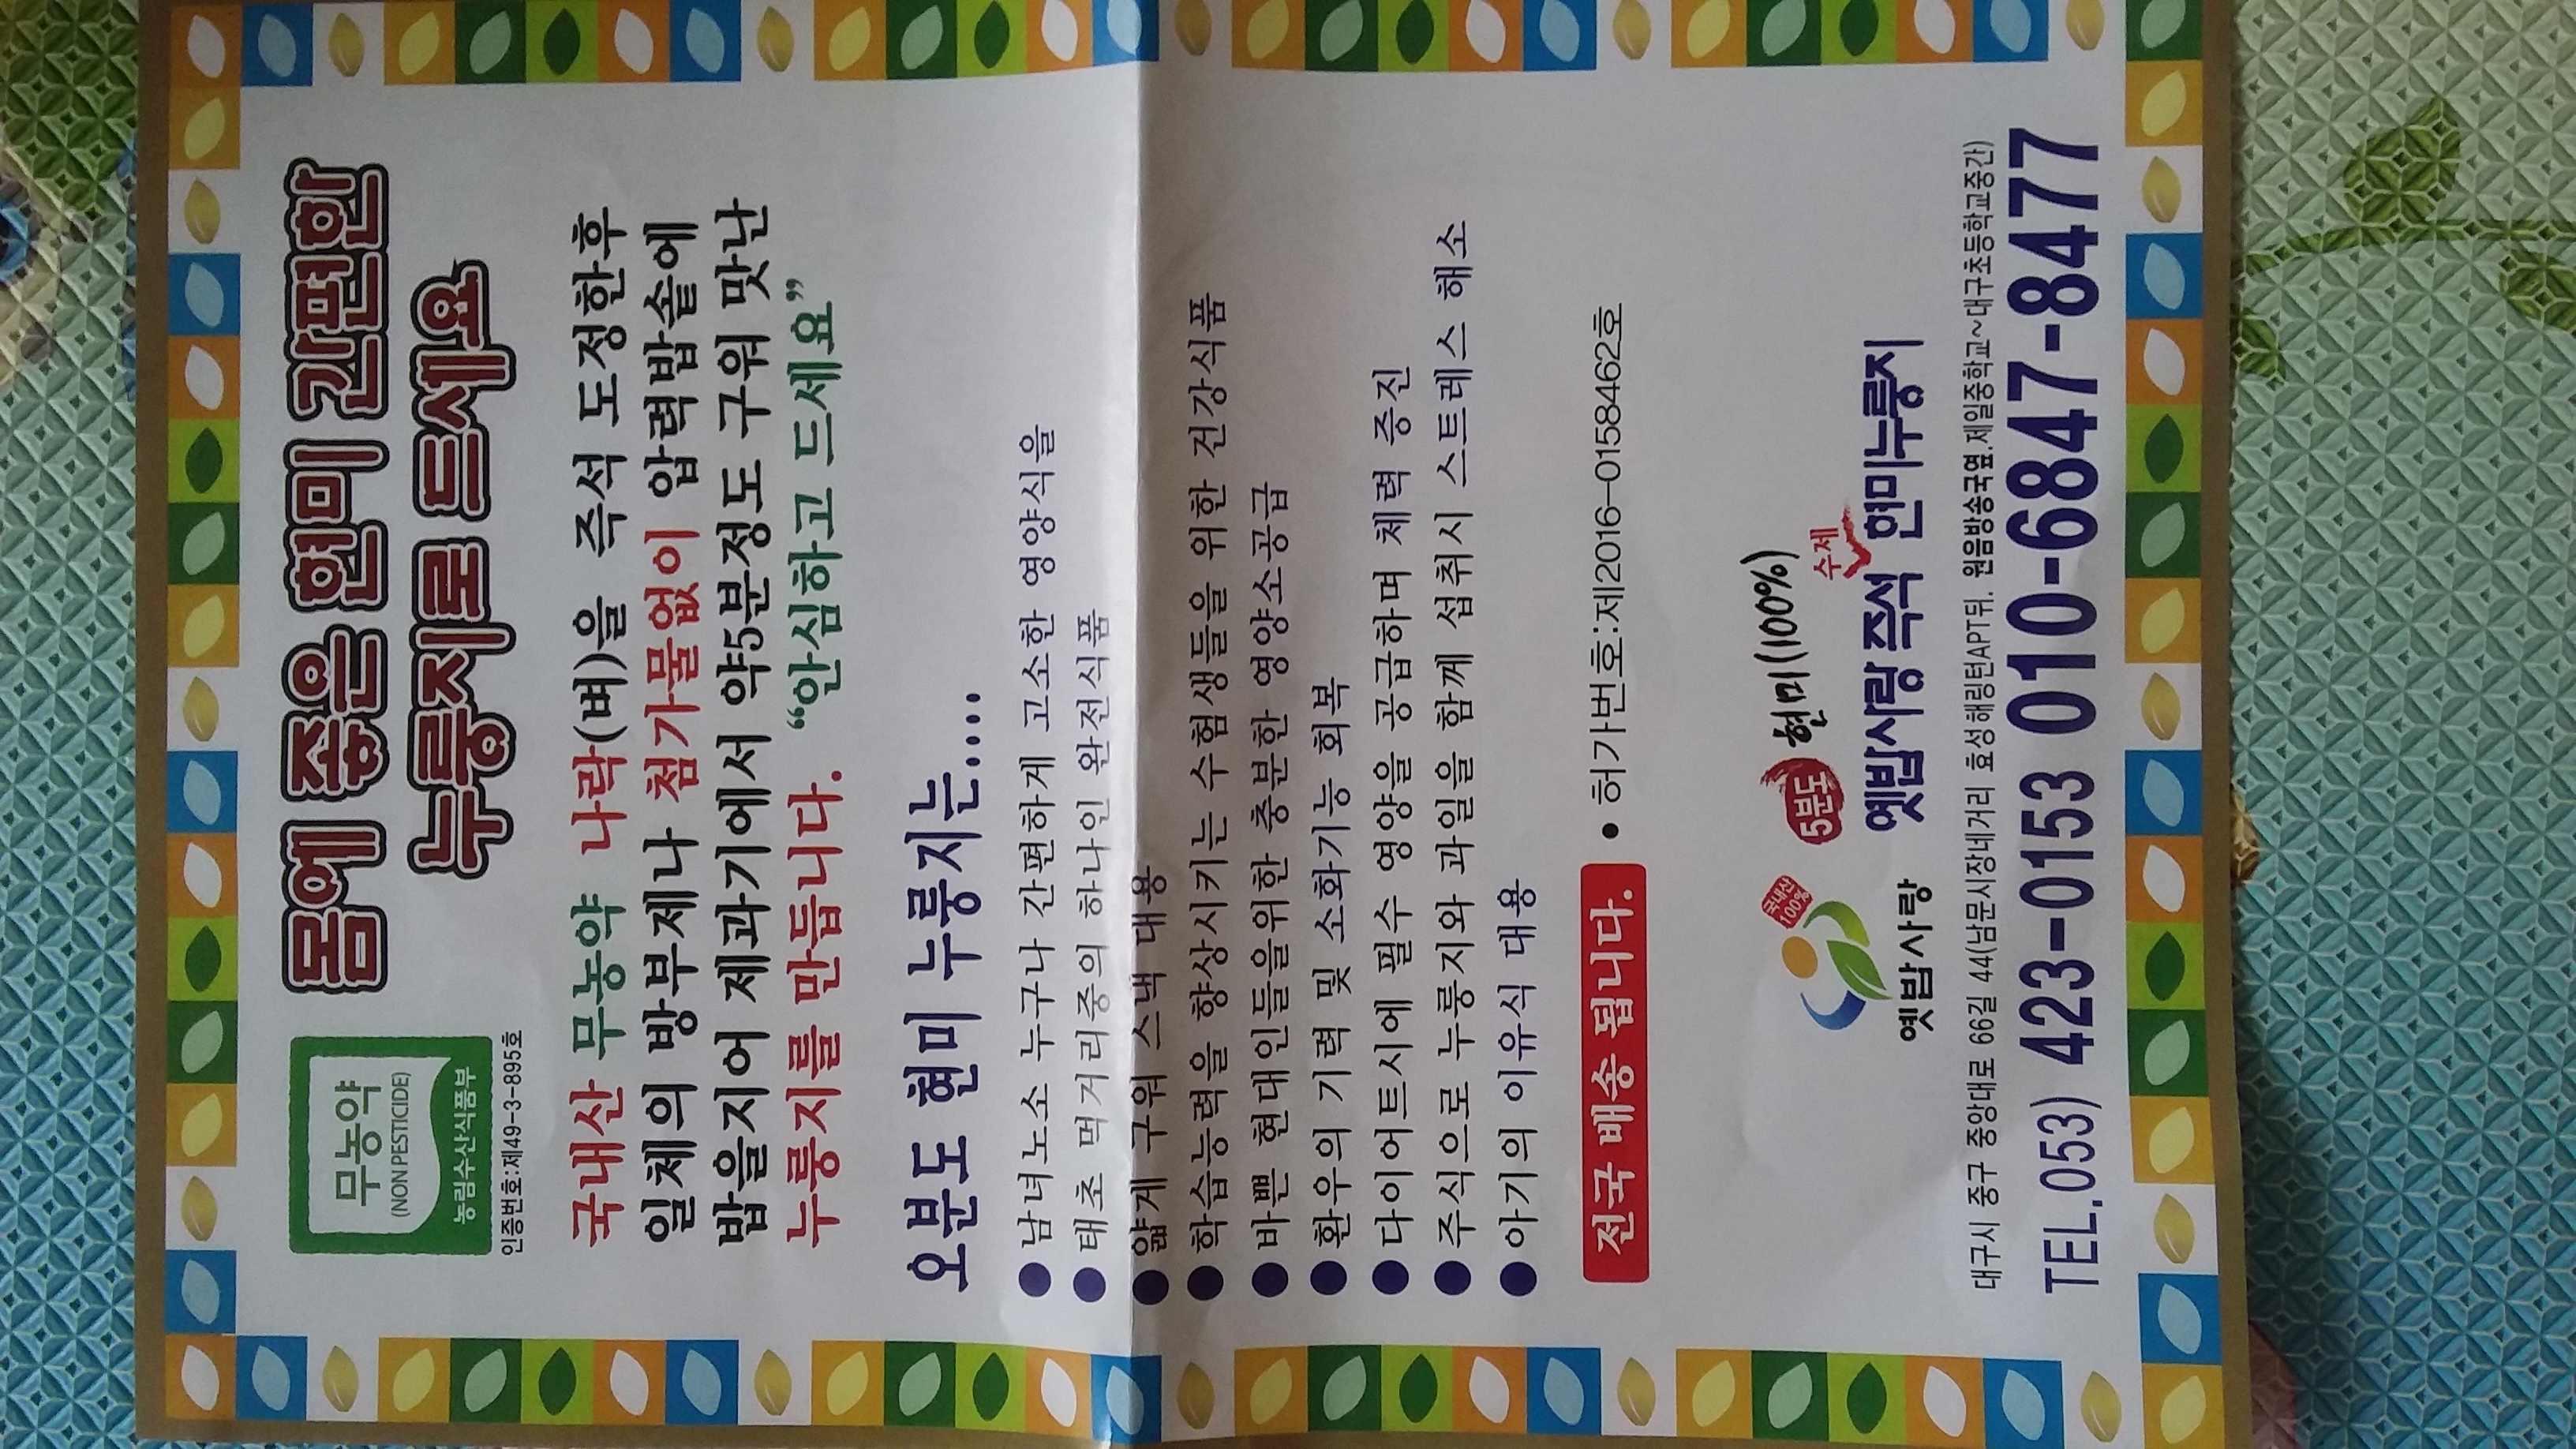 몸에 좋은 현미 간편한
누룽지로 드세요
무농약
(NON PESTICIDE)
농림수산식품부
인증번호:제49-3-895호
국내산 무농약 나락(벼)을 즉석 도정한후
일체의 방부제나 첨가물없이 압력밥솥에
밥을지어 제과기에서 약5분정도 구워 맛난
누룽지를 만듭니다. “안심하고 드세요”
오분도 현미 누룽지는.....
● 남녀노소 누구나 간편하게 고소한 영양식을
● 태초 먹거리중의 하나인 완전식품
● 얇게 구워 스낵 대용
● 학습능력을 향상시키는 수험생들을 위한 건강식품
● 바쁜 현대인들을위한 충분한 영양소공급
● 환우의 기력 및 소화기능 회복
● 다이어트시에 필수 영양을 공급하며 체력 증진
● 주식으로 누룽지와 과일을 함께 섭취시 스트레스 해소
● 아기의 이유식 대용
전국 배송 됩니다. • 허가번호:제2016-0158462호
국내산
100%
옛밥사랑
5분도 현미(100%)
수제
옛밥사랑 즉석 현미누룽지
대구시 중구 중앙대로 66길 44(남문시장네거리 효성해링턴APT뒤. 원음방송국옆.제일중학교~대구초등학교중간)
TEL.053) 423-0153 010-6847-8477